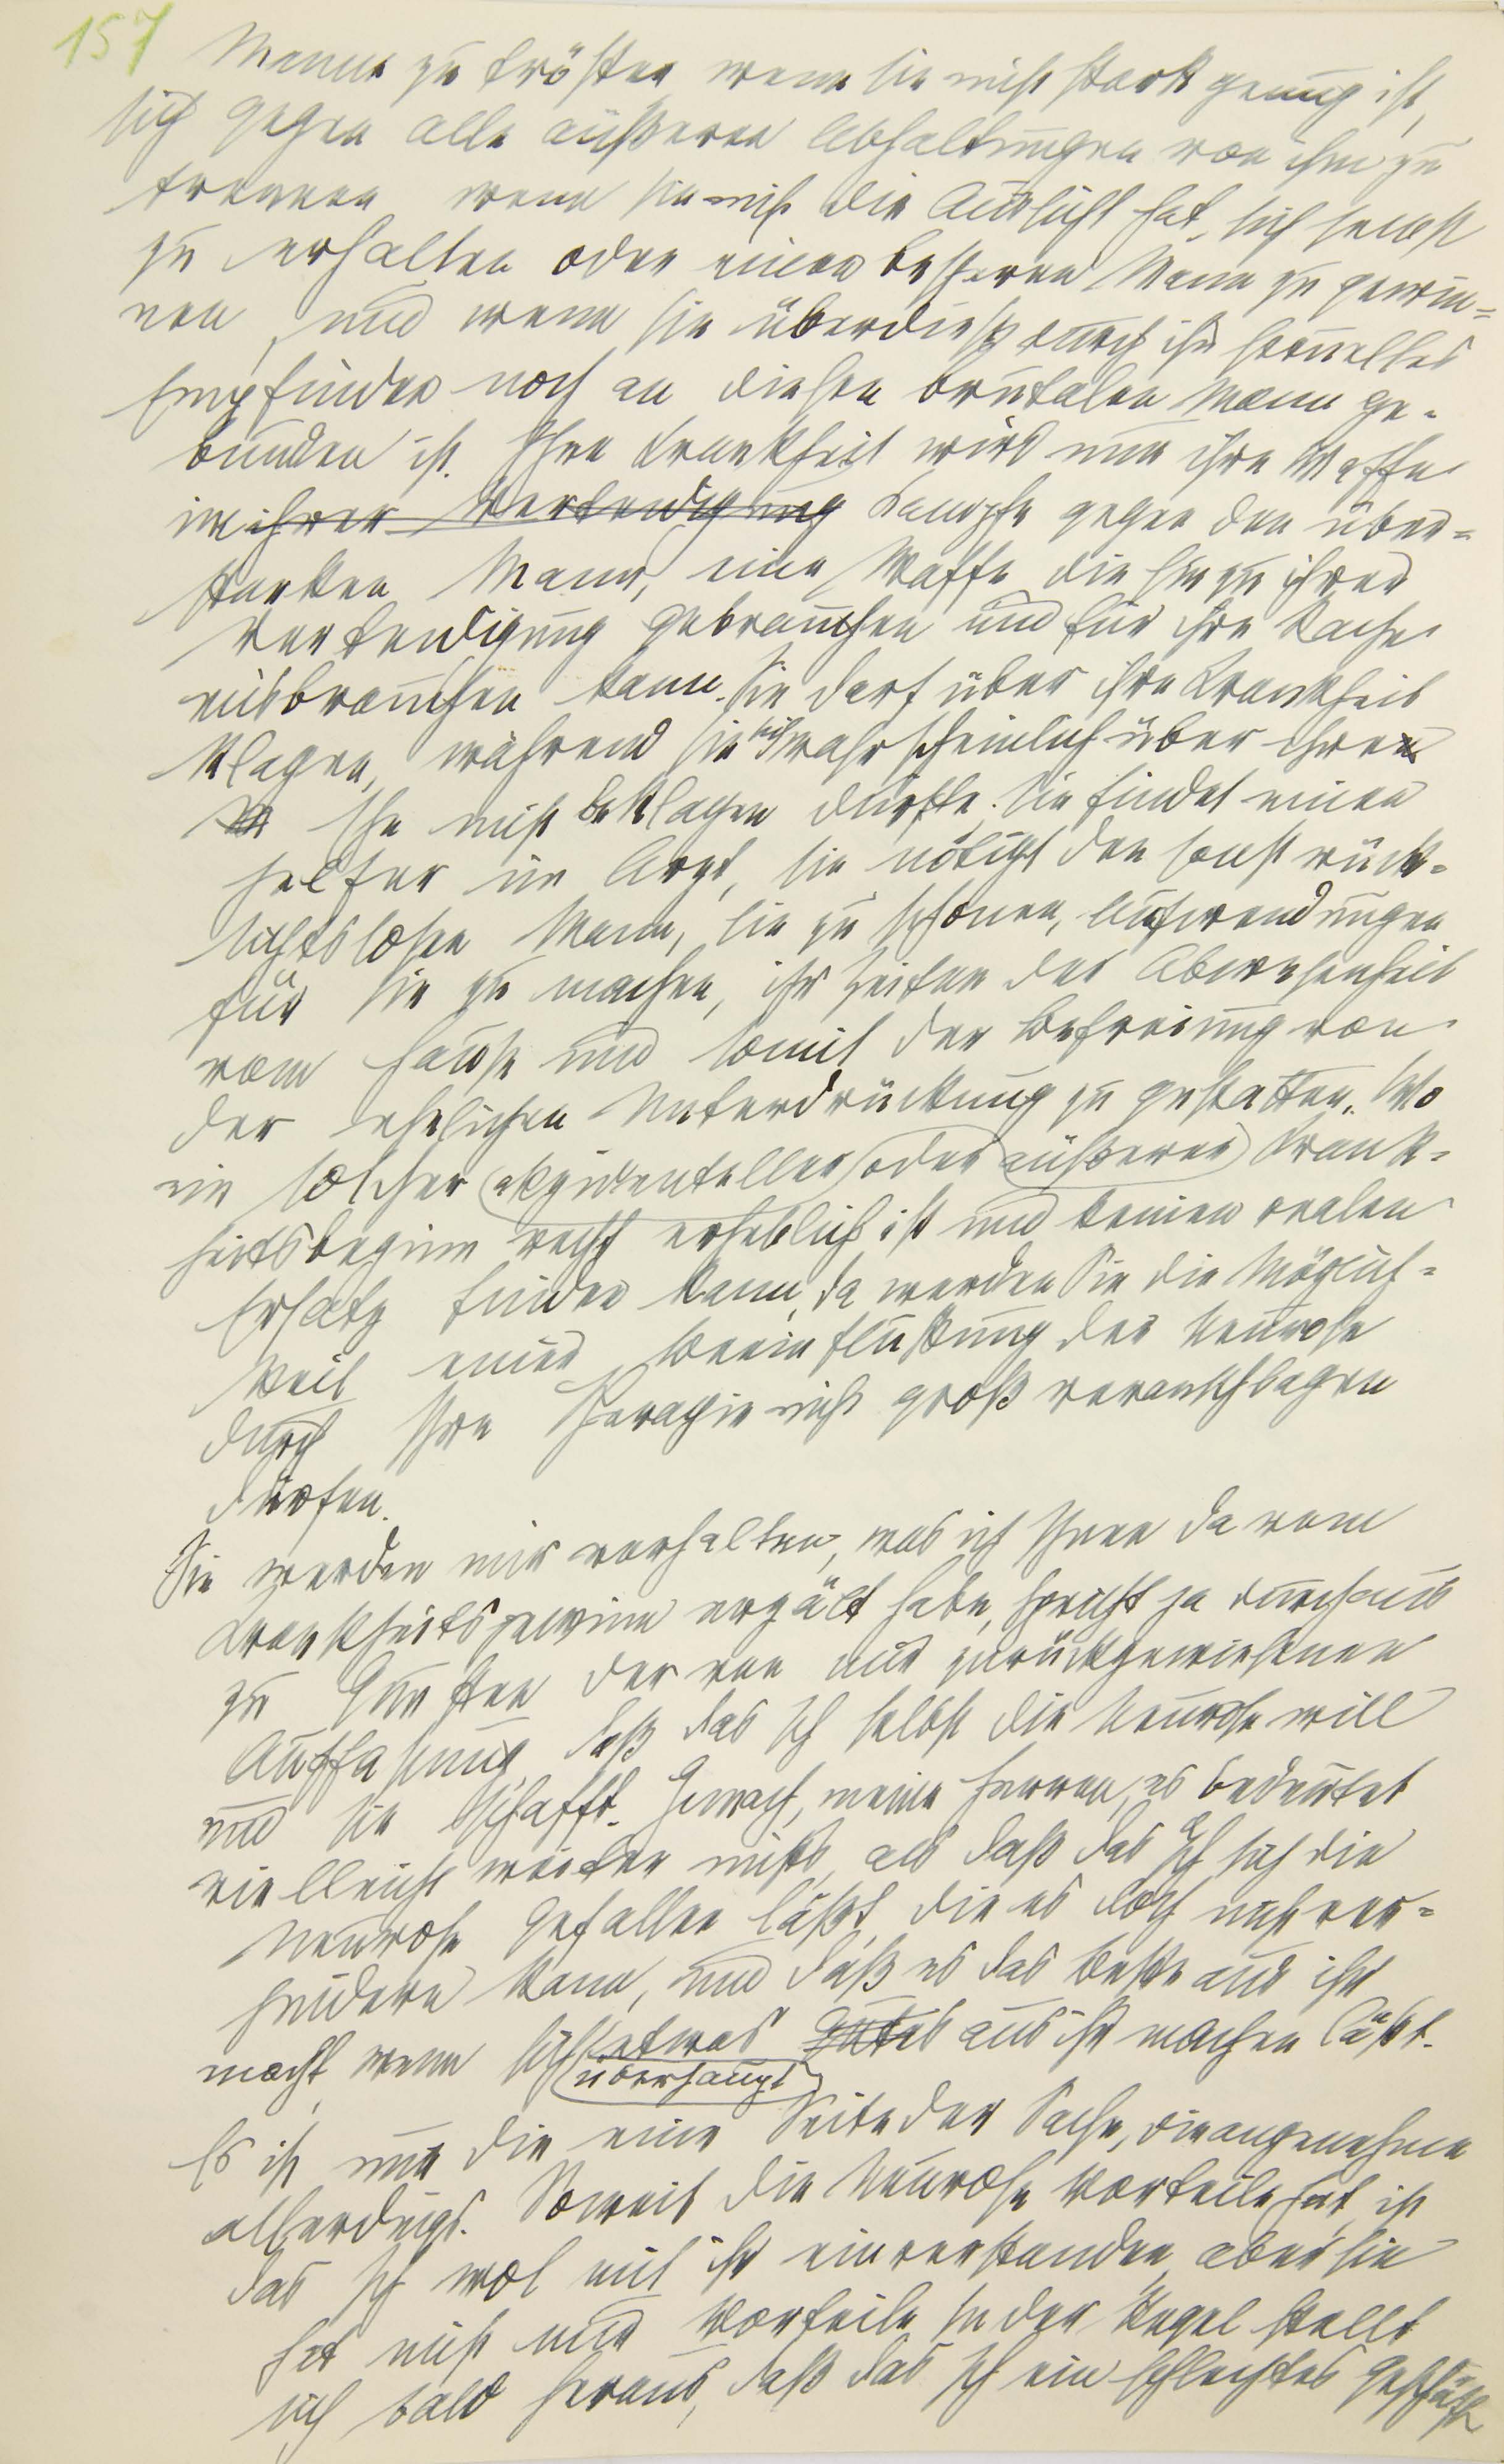 157
Manne zu trösten, wenn sie nicht stark genug ist,
sich gegen alle äußeren Abhaltungen von ihm zu
trennen, wenn sie nicht die Aussicht hat, sich selbst
zu erhalten oder einen besseren Mann zu gewin=
nen, und wenn sie überdieß durch ihr sexuelles
Empfinden noch an diesen brutalen Mann ge-
bunden ist. Ihre Krankheit wird nun ihre Waffe
im ihrer Verteidigung Kampfe gegen den über=
starken Mann, eine Waffe die sie zu ihrer
Verteidigung gebrauchen und für ihre Rache
misbrauchen kann. Sie darf über ihre Krankheit
klagen, während sie sich wahrscheinlich über ihren
M Ehe nicht beklagen dürfte. Sie findet einen
Helfer im Arzt, sie nötigt den sonst rück-
sichtslosen Mann, sie zu schonen, Aufwendungen
für sie zu machen, ihr Zeiten der Abwesenheit
vom Hause und somit der Befreiung von
der ehelichen Unterdrückung zu gestatten. Wo
ein solcher akzidenteller oder äußerer Krank-
heitsgewinn recht erheblich ist und keinen realen
Ersatz finden kann, da werden Sie die Möglich=
keit einer Beeinflussung der Neurose
durch Ihre Therapie nicht groß veranschlagen
dürfen.
Sie werden mir vorhalten, was ich Ihnen da vom
Krankheitsgewinn erzält habe, spricht ja durchaus
zu Gunsten der von mir zurückgewiesenen
Auffassung, daß das Ich selbst die Neurose will
und sie schafft. Gemach, meine Herren, es bedeutet
vielleicht weiter nichts, als daß das Ich sich die
Neurose gefallen läßt, die es doch nicht ver=
hindern kann, und daß es das Beste aus ihr
macht, wenn sich etwas Gutes aus ihr machen läßt.
überhaupt
Es ist nur die eine Seite der Sache, die angenehme
allerdings. Soweit die Neurose Vorteile hat, ist
das Ich wol mit ihr einverstanden, aber sie
hat nicht nur Vorteile. In der Regel stellt
sich bald heraus, daß das Ich ein schlechtes Geschäft